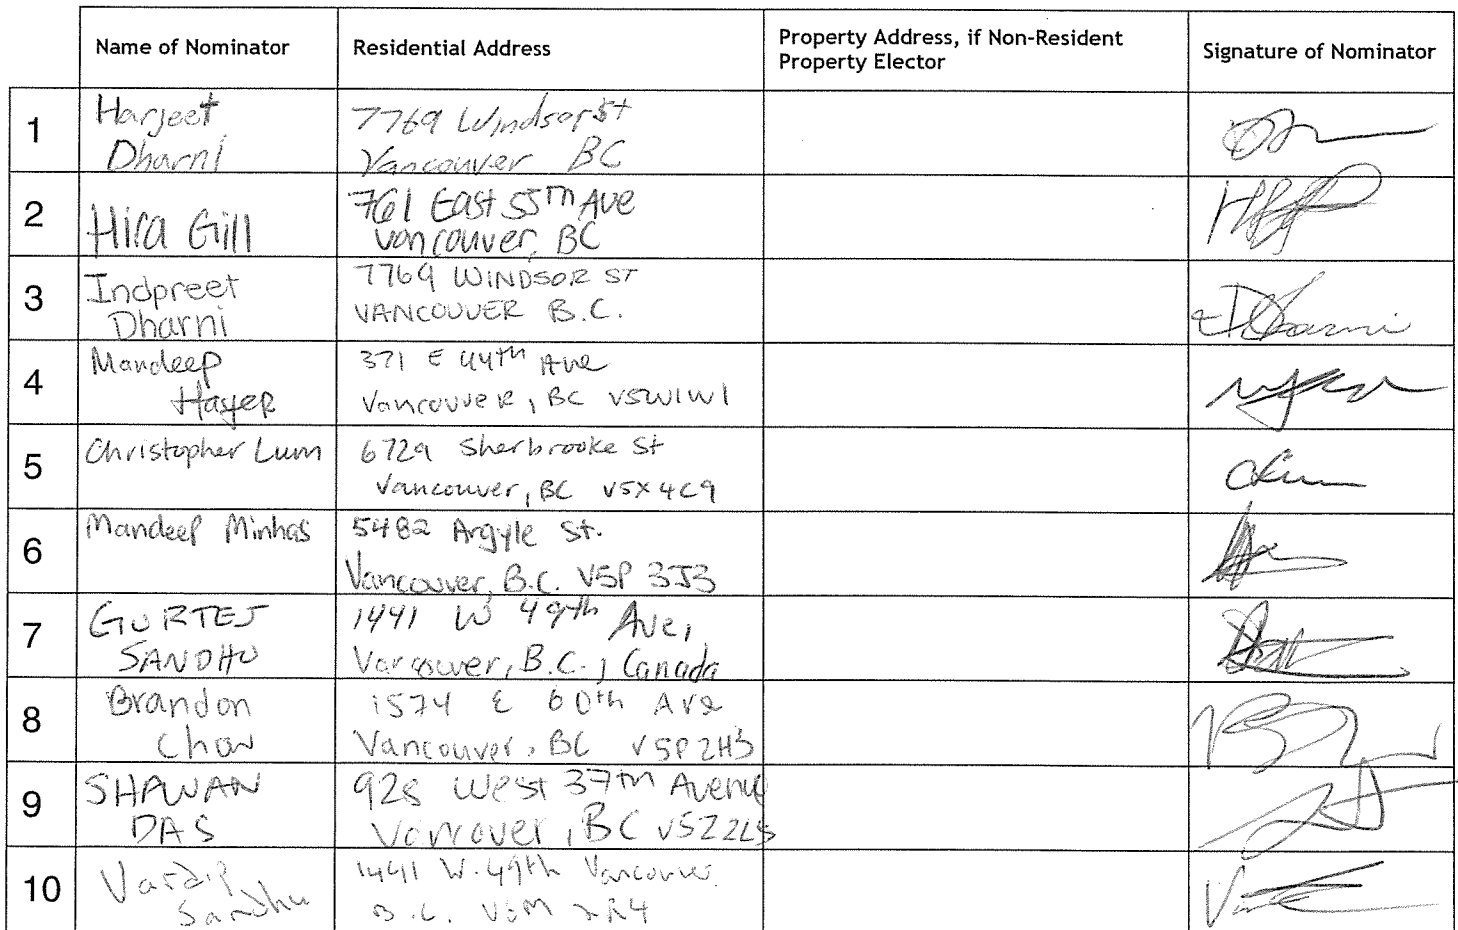 Name of Nominator
Residential Address
Property Address, if Non-Resident
Property Elector
Signature of Nominator
1
Harjeet
Dharni
7769 Windsor St
Vancouver BC
2
Hira Gill
761 East 55th Ave
Vancouver, BC
3
Indpreet
Dharni
7769 WINDSOR ST
VANCOUVER B.C.
4
Mandeep
Hayer
371 E 44th Ave
Vancouver, BC V5W1W1
5
Christopher Lum
6729 Sherbrooke St
Vancouver, BC V5X 4C9
6
Mandeep Minhas
5482 Argyle St.
Vancouver, B.C. V5P 3J3
7
GURTEJ
SANDHU
1441 W 49th Ave,
Vancouver, B.C., Canada
8
Brandon
Chow
1574 E 60th Ave
Vancouver, BC V5P2H3
9
SHAWAN
DAS
928 West 37th Avenue
Vancouver, BC V5Z2L5
10
Vardip
Sandhu
1441 W. 49th Vancouver
B.C. V6M 2R4